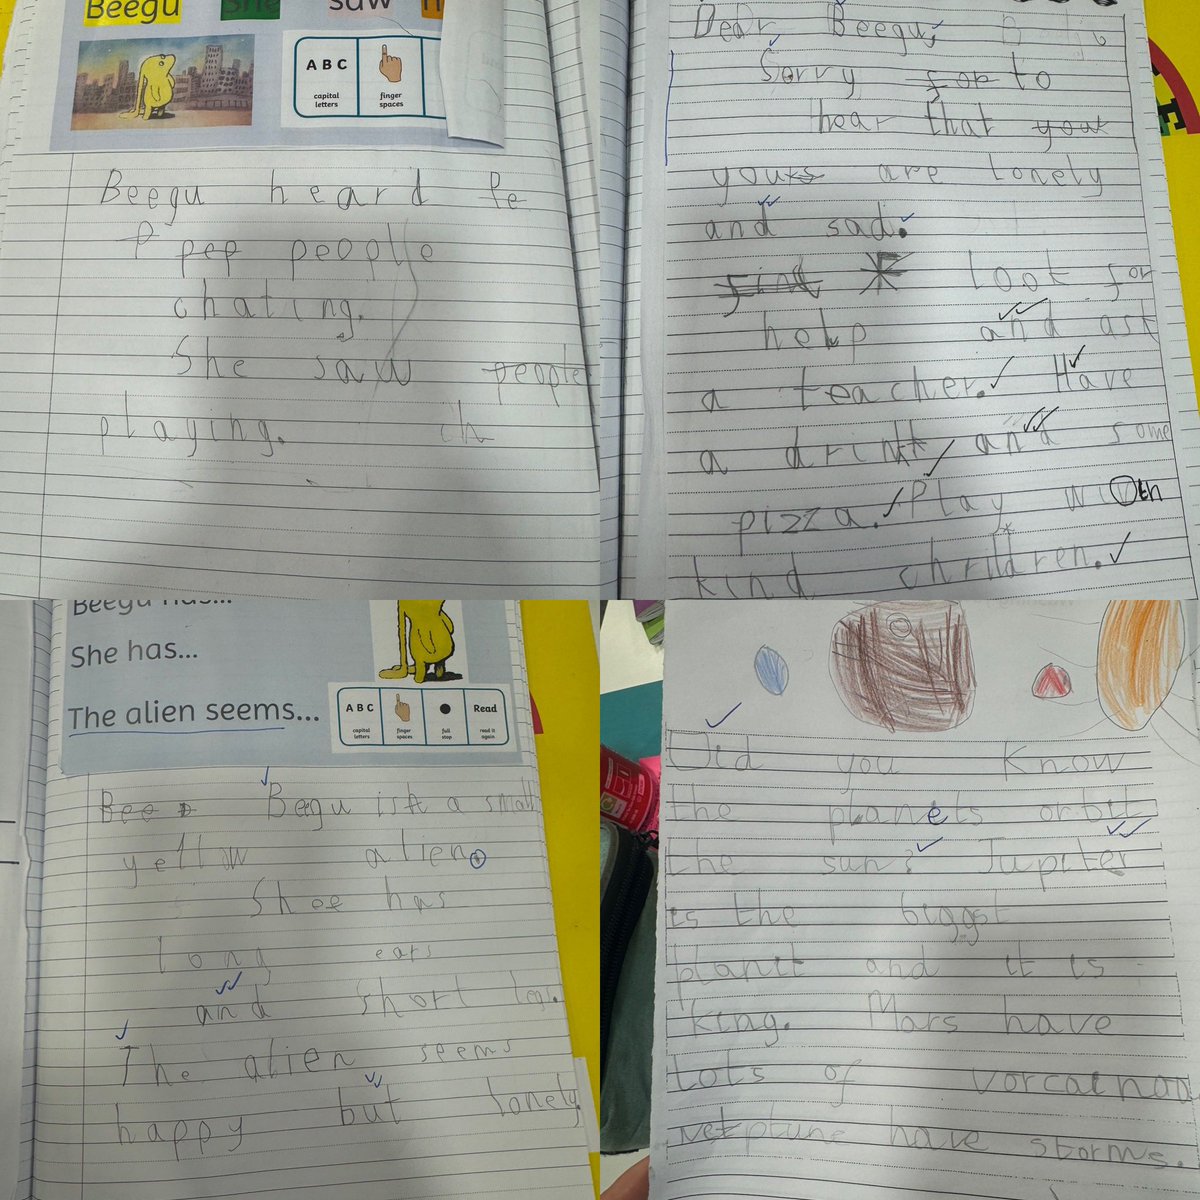 Beegu
she
saw
A B C
capital letters
finger spaces
Beegu heard Pe
P pep people
chating.
She saw people
playing. ch
Dear Beegu,
Sorry for to
hear that your
yours are lonely
and sad.
find look for
help and ask
a teacher. Have
a drink and some
pizza. Play with
kind chrildren.
Beegu has...
She has...
The alien seems...
A B C
capital letters
finger spaces
full stop
Read
read it again
Bee Beegu is a small
yellow alien.
Shee has
long ears
and short legs.
The alien seems
happy but lonely.
Did you Know
the planets orbit
the sun? Jupiter
is the biggst
planit and it is
king. Mars have
lots of vorcalnoa
neptune have storms.